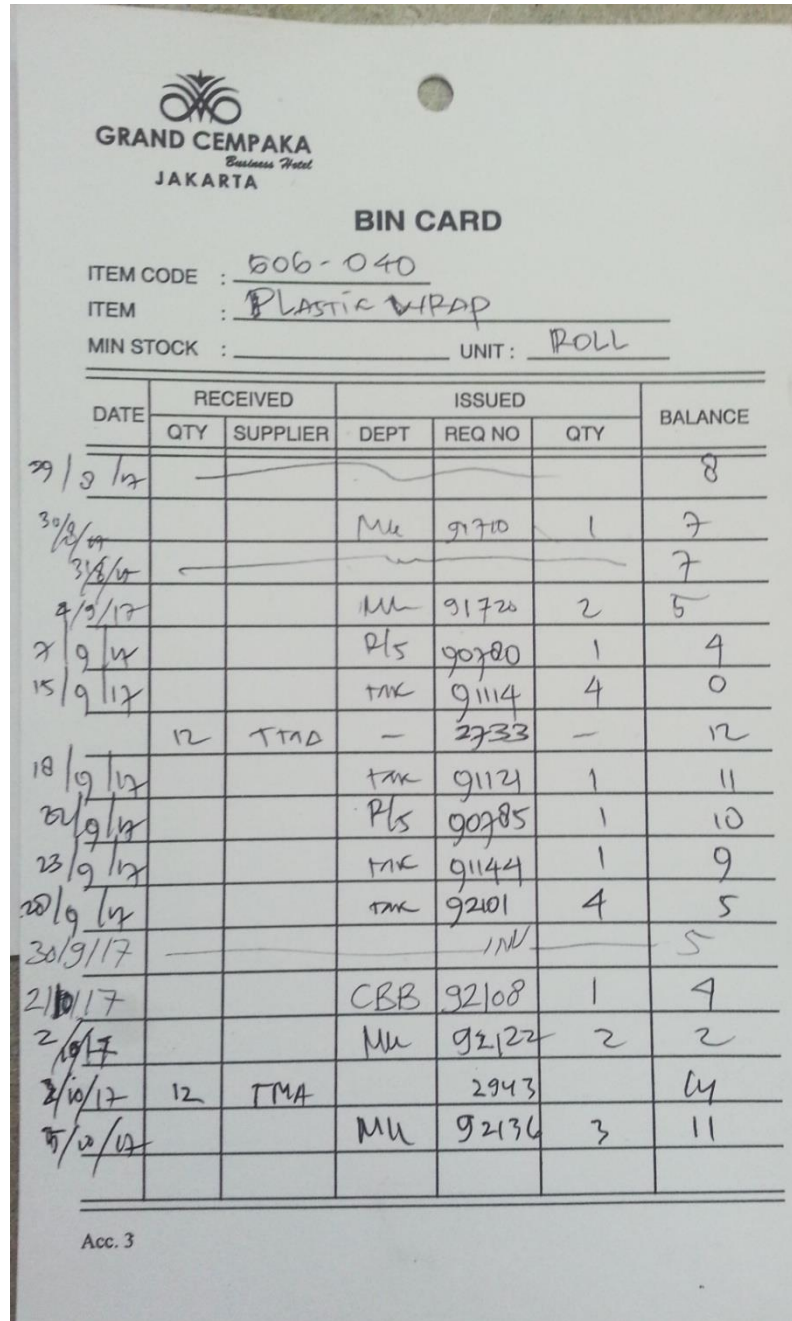 GRAND CEMPAKA
Business Hotel
JAKARTA
BIN CARD
ITEM CODE : 506-040
ITEM : PLASTIC WRAP
MIN STOCK : UNIT : ROLL
DATE RECEIVED ISSUED BALANCE
QTY SUPPLIER DEPT REQ NO QTY
29/8/17 8
30/8/17 Mk 91710 1 7
31/8/17 7
4/9/17 Mk 91720 2 5
7/9/17 P/s 90780 1 4
15/9/17 TMK 91114 4 0
12 TMA - 2733 - 12
18/9/17 TMK 91121 1 11
22/9/17 P/s 90785 1 10
23/9/17 TMK 91144 1 9
28/9/17 TMK 92101 4 5
30/9/17 INV 5
2/10/17 CBB 92108 1 4
2/10/17 Mk 92122 2 2
12 TMA 2943 14
5/10/17 Mk 92136 3 11
Acc. 3